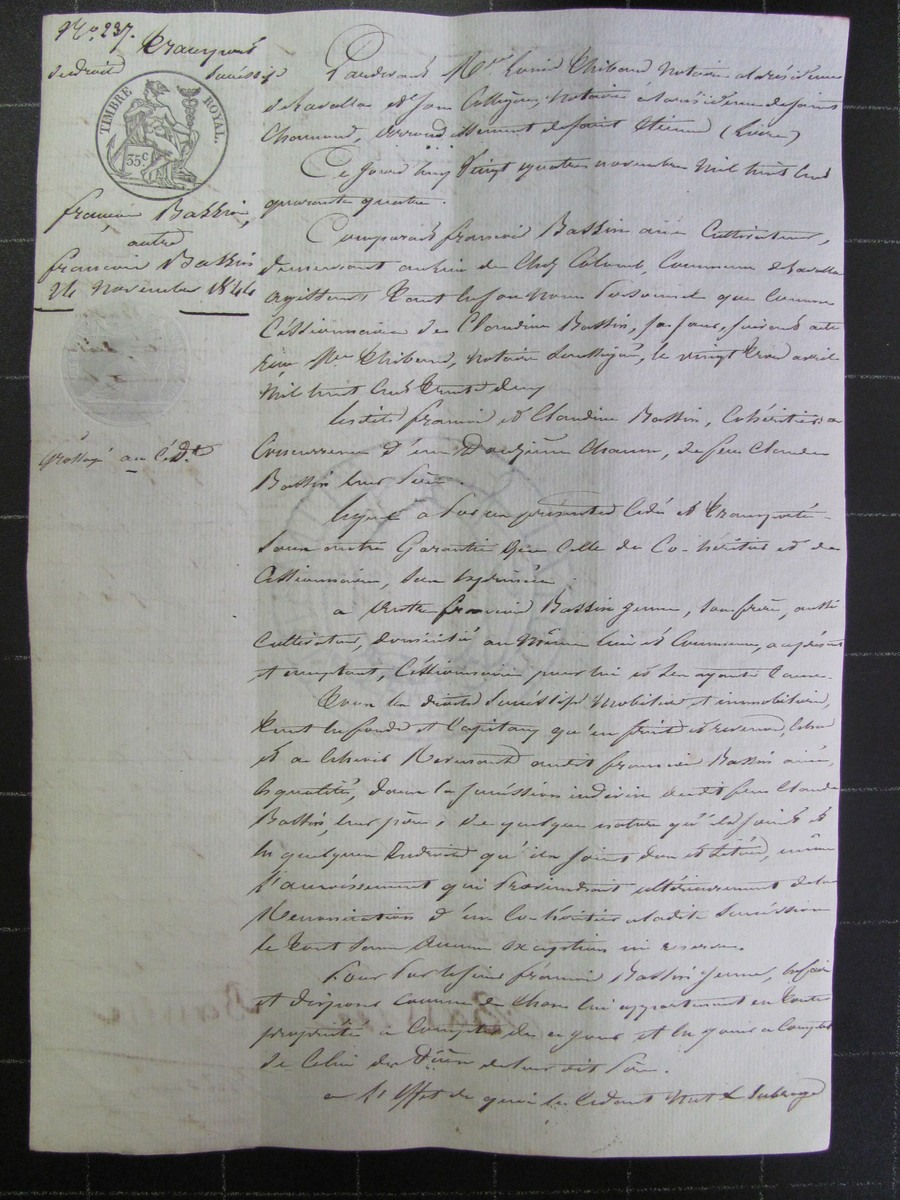 No. 237.
Transport
de droits successifs
TIMBRE ROYAL.
35 c.
françois Bassin,
autre
francois Bassin
24 novembre 1844
Grossoyé au Céd.t
Pardevant Me Louis Thibaud Notaire à la résidence
de Lavalla et son Collègue, Notaire à la résidence de saint
Chamond, arrondissement de saint Etienne (Loire)
Ce jourd'huy Vingt quatre novembre Mil huit cent
quarante quatre.
Comparait francois Bassin ainé Cultivateur,
demeurant au lieu de Chez Colomb, Commune de Lavalla
agissant tant en son Nom Personnel que Comme
Cessionnaire de Claudine Bassin, sa sœur, suivant acte
reçu Me Thibaud, Notaire Soussigné, le vingt trois avril
Mil huit Cent trente deux
Lesdits francois et Claudine Bassin, Cohéritiers a
Concurrence d'un Douzième Chacun, de feu Claude
Bassin leur Père
Lequel a Par ces présentes Cédé et transporté
Sans autre Garantie que Celle de Co-héritier et de
Cessionnaire, sans exprimée
a autre francois Bassin jeune, son frère, aussi
Cultivateur, domicilié au Même lieu et Commune, acy présent
et acceptant, Cessionnaire pour lui et ses ayants Cause
Tous les droits Successifs Mobiliers et immobiliers,
tant en fonds et Capitaux qu'en fruits et revenus, échus
et a échoir Revenant audit francois Bassin ainé,
esqualités, dans la succession indivise dudit feu Claude
Bassin, leur père, de quelque nature qu'ils soient et
en quelques Endroits qu'ils soient dus et situés, même
l'accroissement qui Proviendrait ultérieurement de la
Renonciation d'un Co-héritier a ladite Succession
le tout sans Aucune exception ni reserve.
Pour Par ledit francois Bassin jeune, en faire
et disposer comme de Chose lui appartenant en toute
propriété a Compter de ce jour et en jouir a Compter
de Celui du Décès de leur dit Père.
a l'Effet de quoi le Cédant Met & Subroge